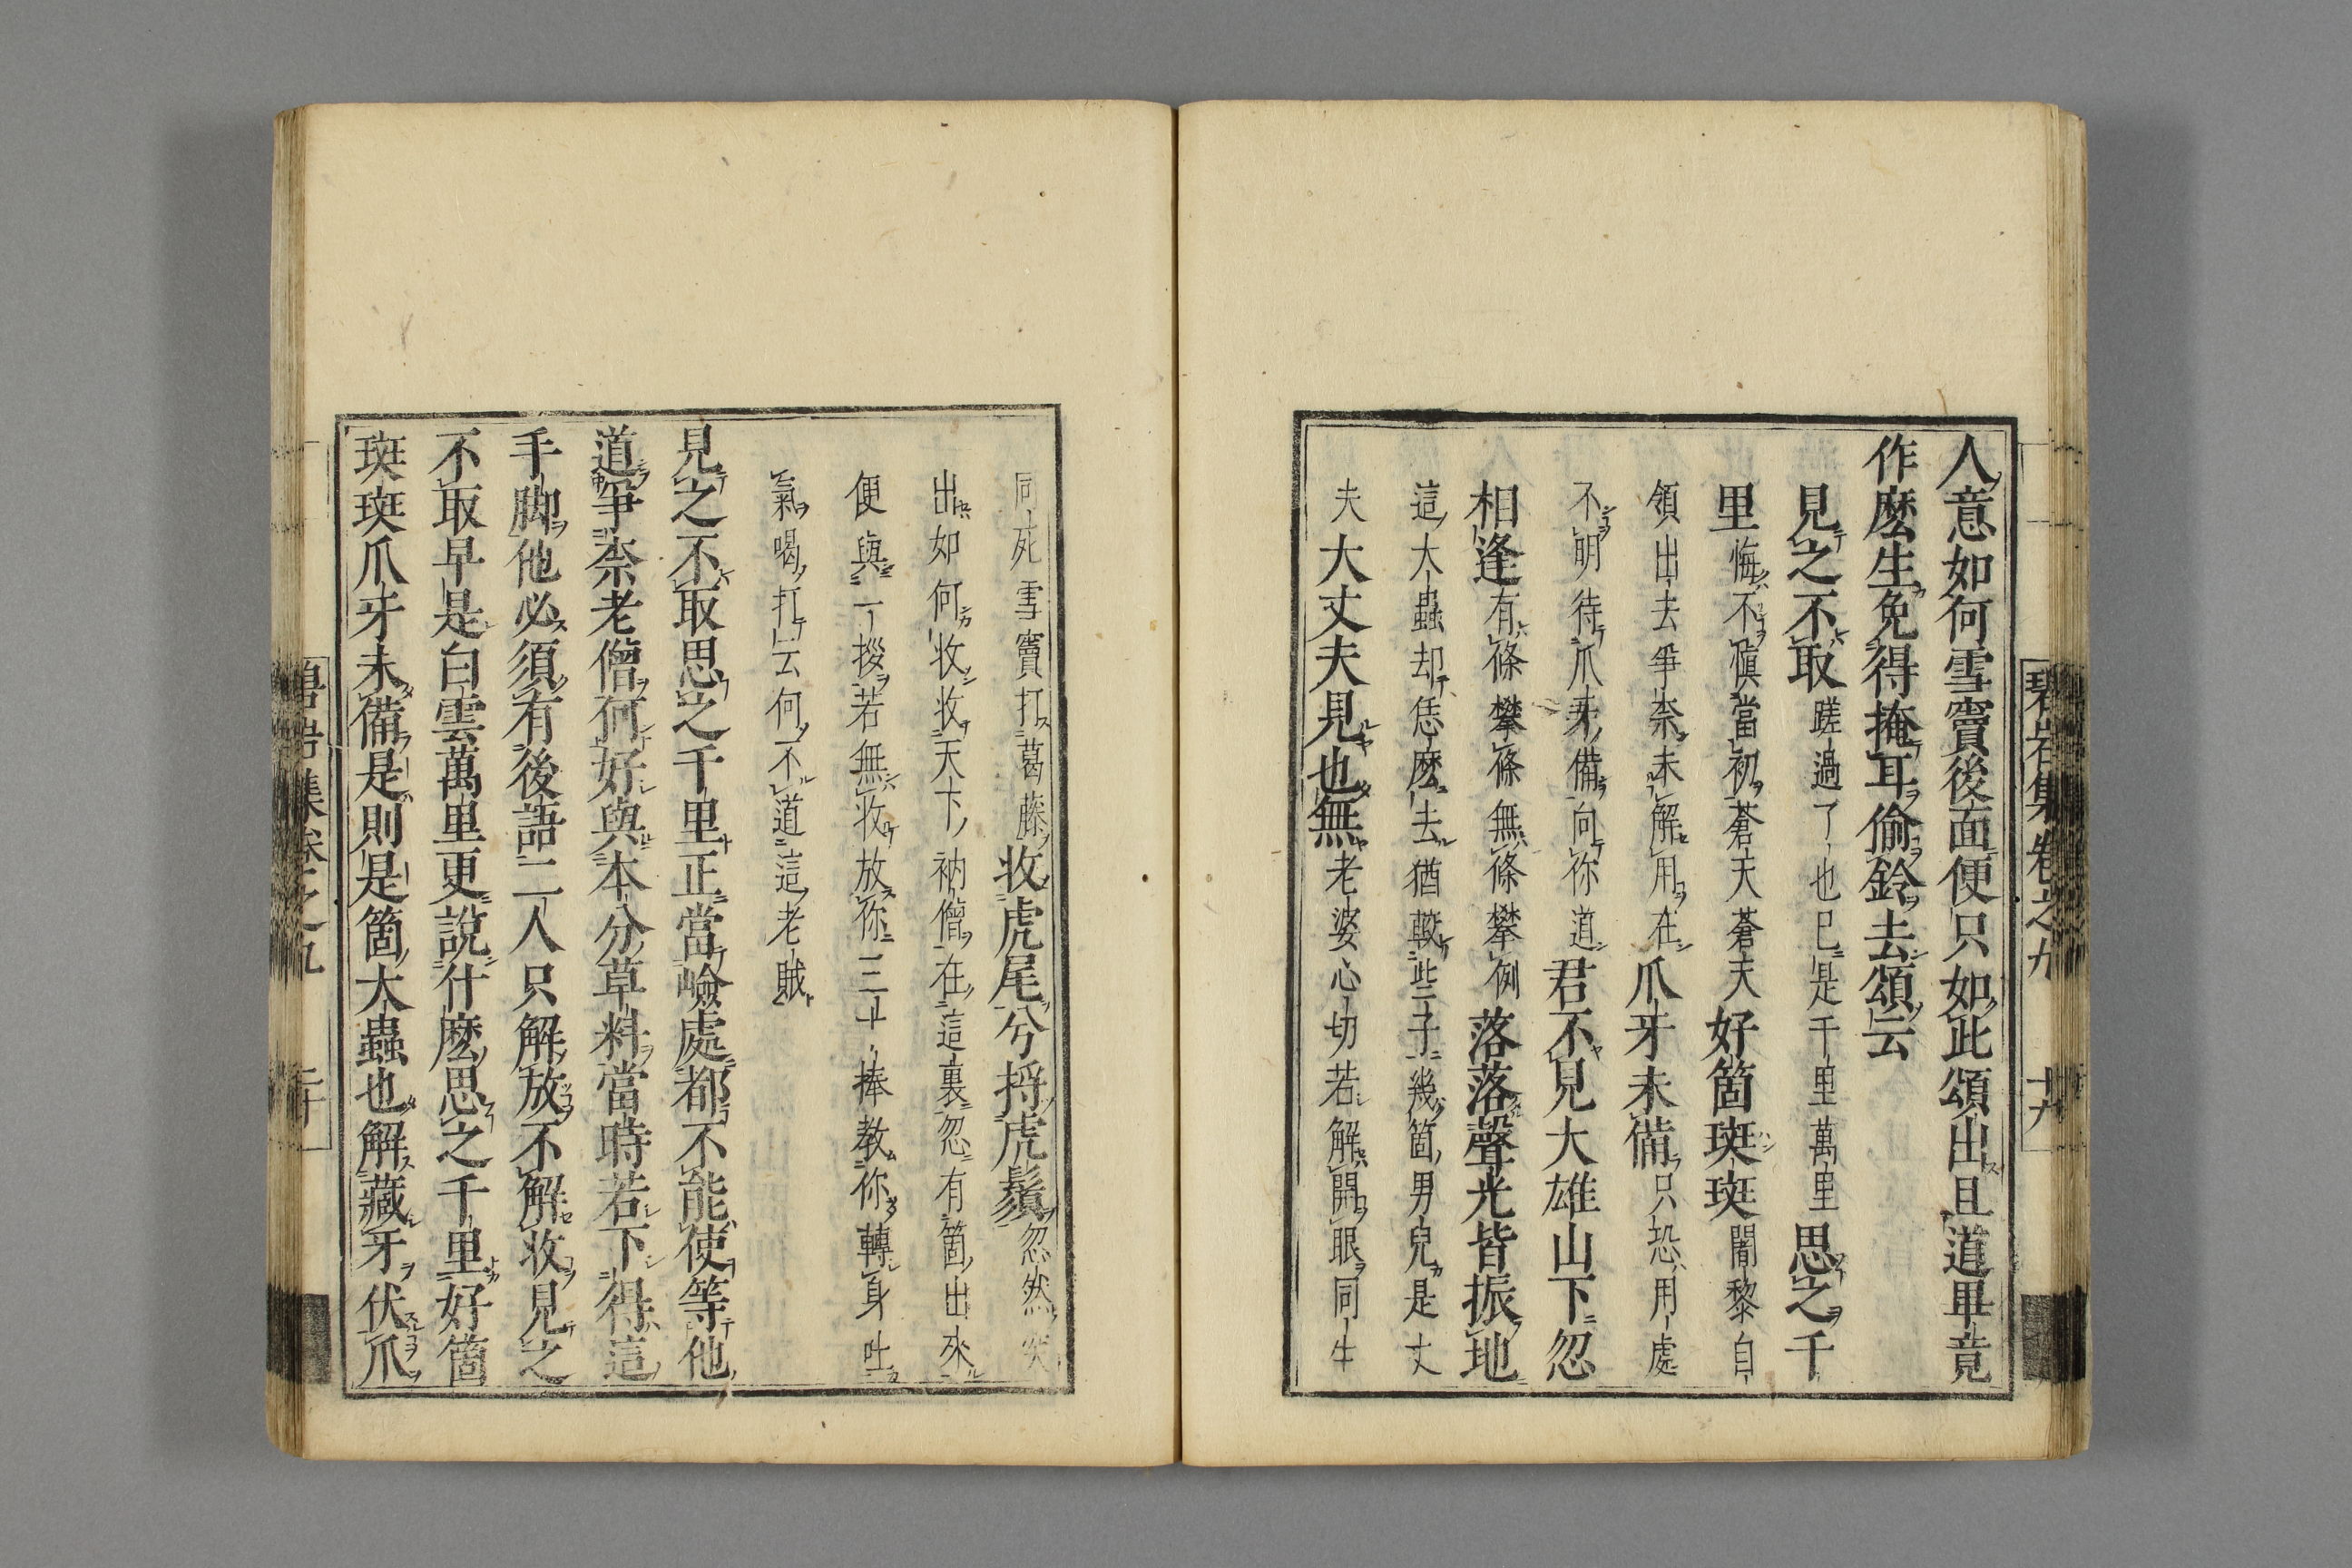 碧岩集卷之九 十九
人意如何雪竇後面便只如此頌出且道畢竟
作麼生免得掩耳偷鈴去頌云
見之不取蹉過了也已是千里萬里思之千
里悔不愼當初蒼天蒼天好箇斑斑闍黎自
領出去爭柰未解用在爪牙未備只恐用處
不明待爪牙備向你道君不見大雄山下忽
相逢有條攀條無條攀例落落聲光皆振地
這大蟲却恁麼去猶較些子幾箇男兒是丈
夫大丈夫見也無老婆心切若解開眼同生
同死雪竇打葛藤收虎尾兮捋虎鬚忽然突
出如何收收天下衲僧在這裏忽有箇出來
便與一拶若無收放你三十棒教你轉身吐
氣喝打云何不道這老賊
見之不取思之千里正當嶮處都不能使等他
道爭柰老僧何好與本分草料當時若下得這
手脚他必須有後語二人只解放不解收見之
不取早是白雲萬里更說什麼思之千里好箇
斑斑爪牙未備是則是箇大蟲也解藏牙伏爪